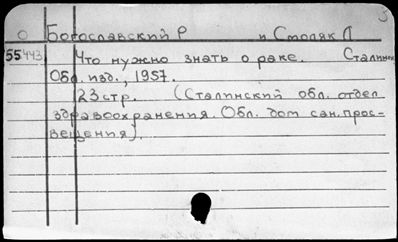 О Богославский Р и Столяк Л
55443 Что нужно знать о раке. Сталинск
Обл. изд., 1957.
23 стр. (Сталинский обл. отдел
здравоохранения. Обл. дом сан. прос-
вещения).